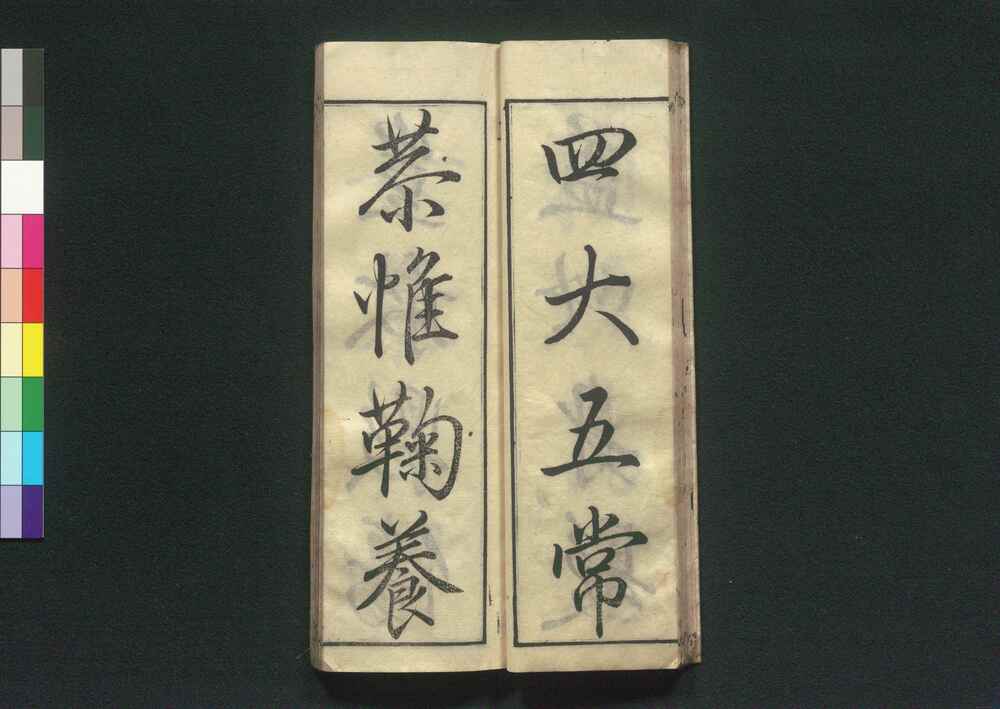 四大五常
恭惟鞠養